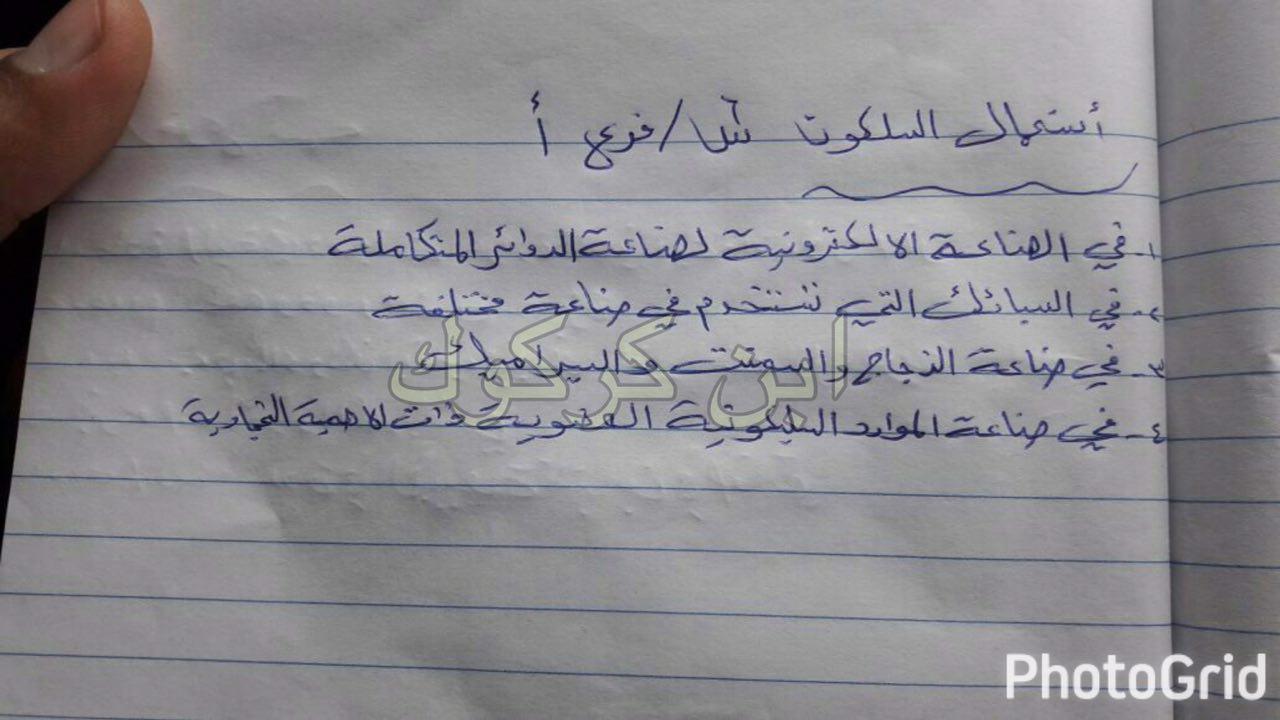 أستعمال السلكون س/فرع أ
١- في الصناعة الالكترونية لصناعة الدوائر المتكاملة
٢- في السبائك التي تستخدم في صناعة مختلفة
٣- في صناعة الزجاج والسمنت والسيراميك
٤- في صناعة الموارد السليكونية العضوية ذات الاهمية التجارية
ابن كركوك
PhotoGrid